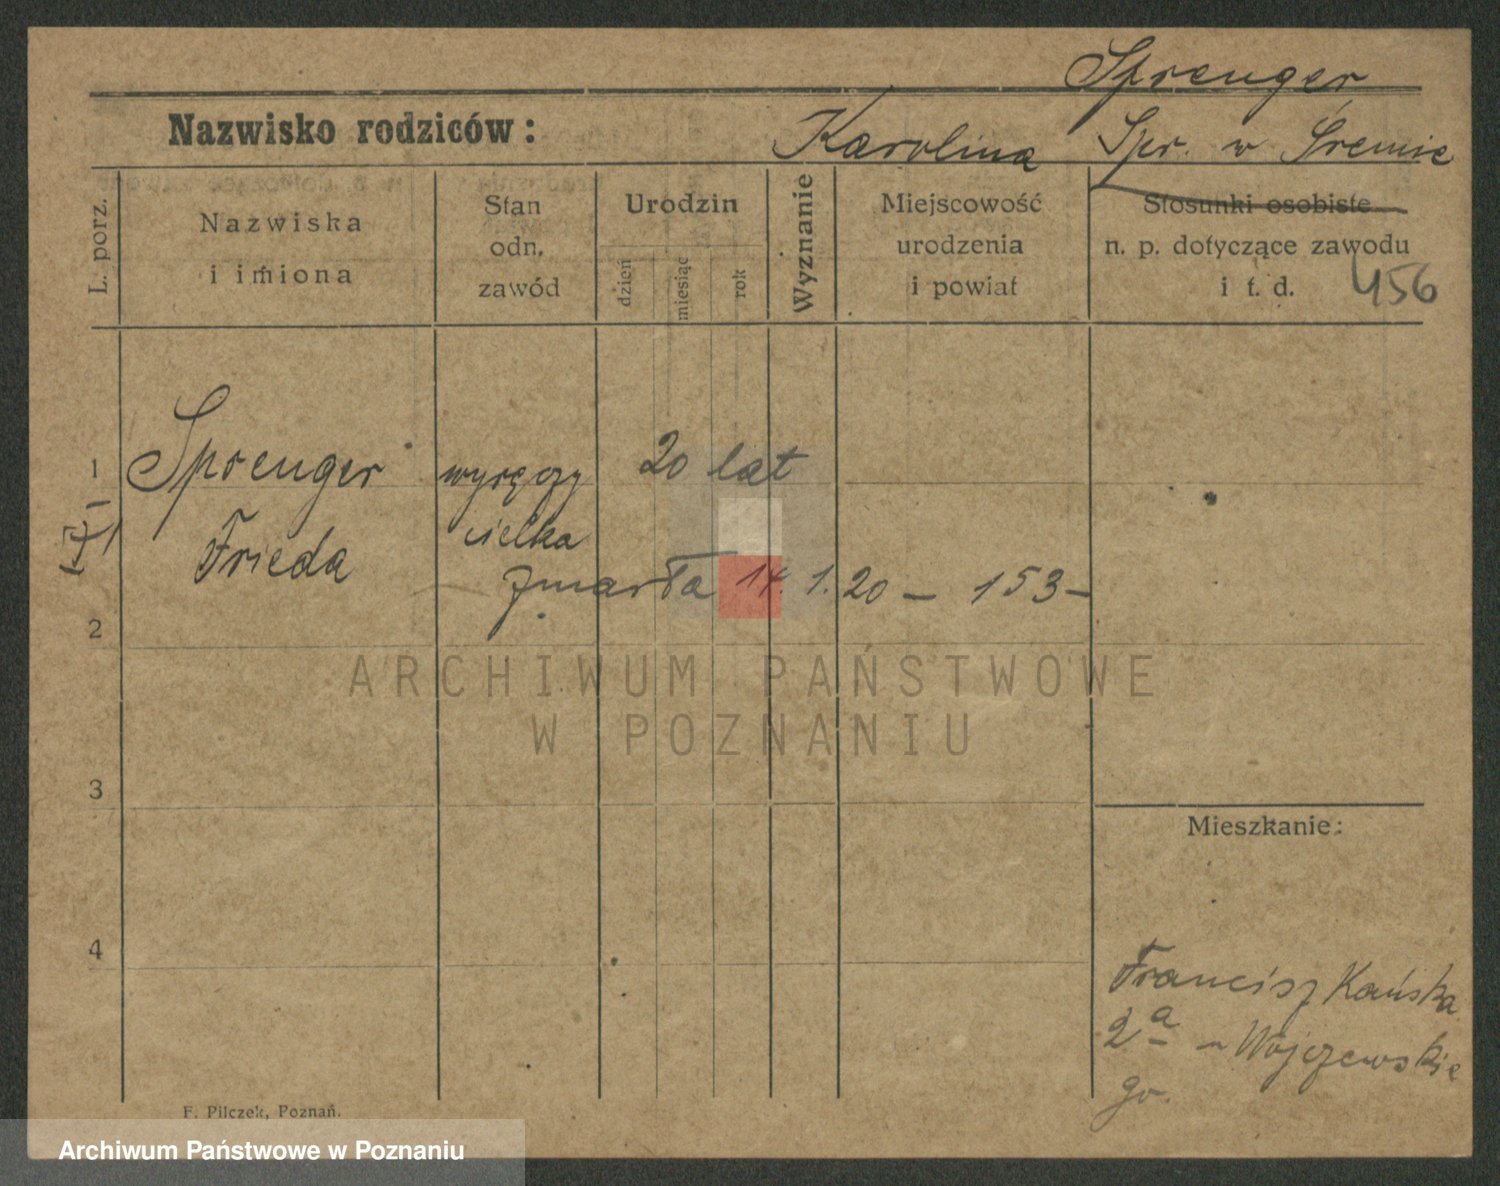 Sprenger
Nazwisko rodziców: Karolina Spr. w Śremie
L. porz.
Nazwiska
i imiona
Stan
odn.
zawód
Urodzin
dzień
miesiąc
rok
Wyznanie
Miejscowość
urodzenia
i powiat
Stosunki osobiste
n. p. dotyczące zawodu
i t. d. 456
1 Sprenger wyręczy 20 lat
Frieda cielka
zmarła 14.1.20 – 153–
2
ARCHIWUM PAŃSTWOWE
W POZNANIU
3
Mieszkanie:
4
Franciszkańska
2a – Wojczewskie
go.
F. Pilczek, Poznań.
Archiwum Państwowe w Poznaniu